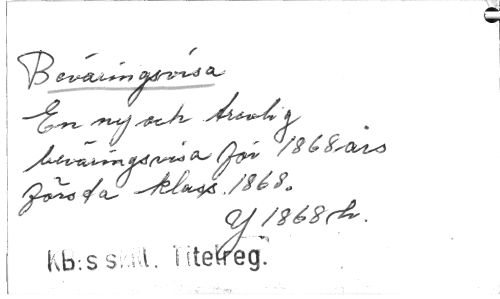 Beväringsvisa
En ny och trevlig
beväringsvisa för 1868 års
första klass. 1868.
Y 1868 h.
Kb:s skill. Titelreg.